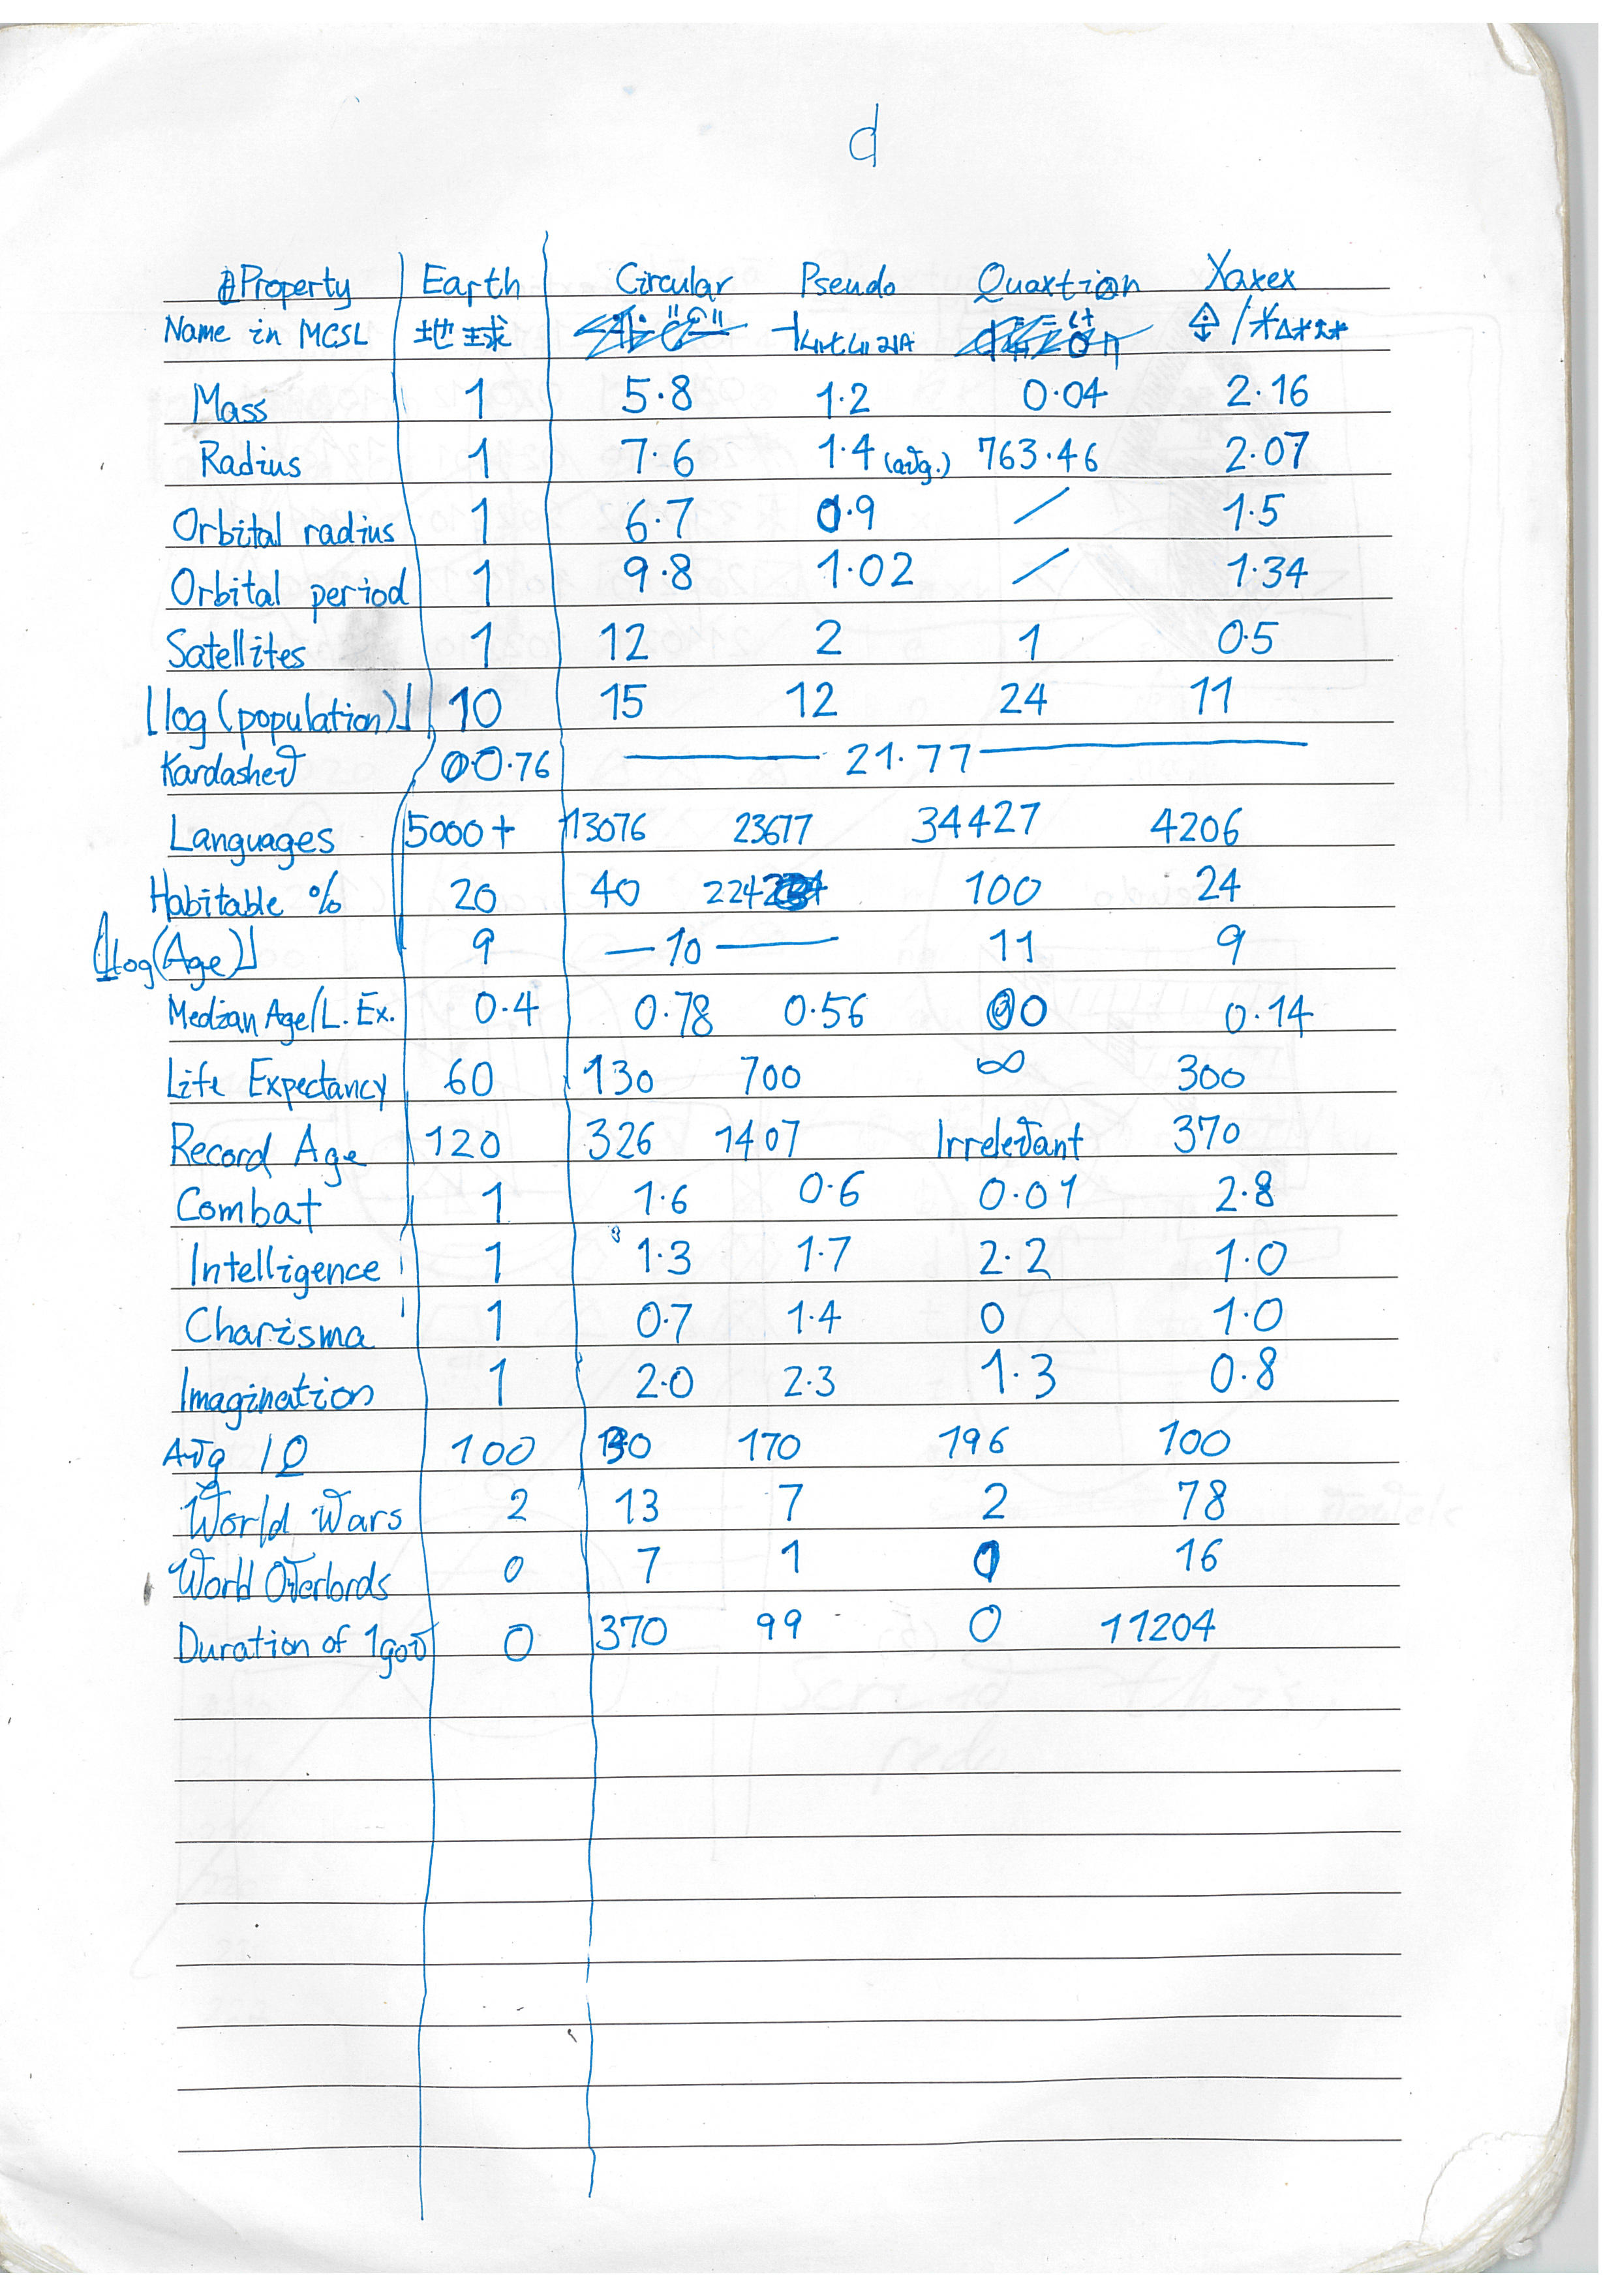 d
Property Earth Circular Pseudo Quaxtion Xaxex
Name in MCSL 地球
Mass 1 5.8 1.2 0.04 2.16
Radius 1 7.6 1.4 (avg.) 763.46 2.07
Orbital radius 1 6.7 0.9 / 1.5
Orbital period 1 9.8 1.02 / 1.34
Satellites 1 12 2 1 0.5
⌊log(population)⌋ 10 15 12 24 11
Kardashev 0.76 21.77
Languages 5000+ 13076 23677 34427 4206
Habitable % 20 40 224 100 24
⌊log(Age)⌋ 9 10 11 9
Median Age/L. Ex. 0.4 0.78 0.56 0 0.14
Life Expectancy 60 130 700 ∞ 300
Record Age 120 326 1407 Irrelevant 370
Combat 1 1.6 0.6 0.01 2.8
Intelligence 1 1.3 1.7 2.2 1.0
Charisma 1 0.7 1.4 0 1.0
Imagination 1 2.0 2.3 1.3 0.8
Avg IQ 100 130 170 196 100
World Wars 2 13 7 2 78
World Overlords 0 7 1 16
Duration of 1gov 0 370 99 0 11204